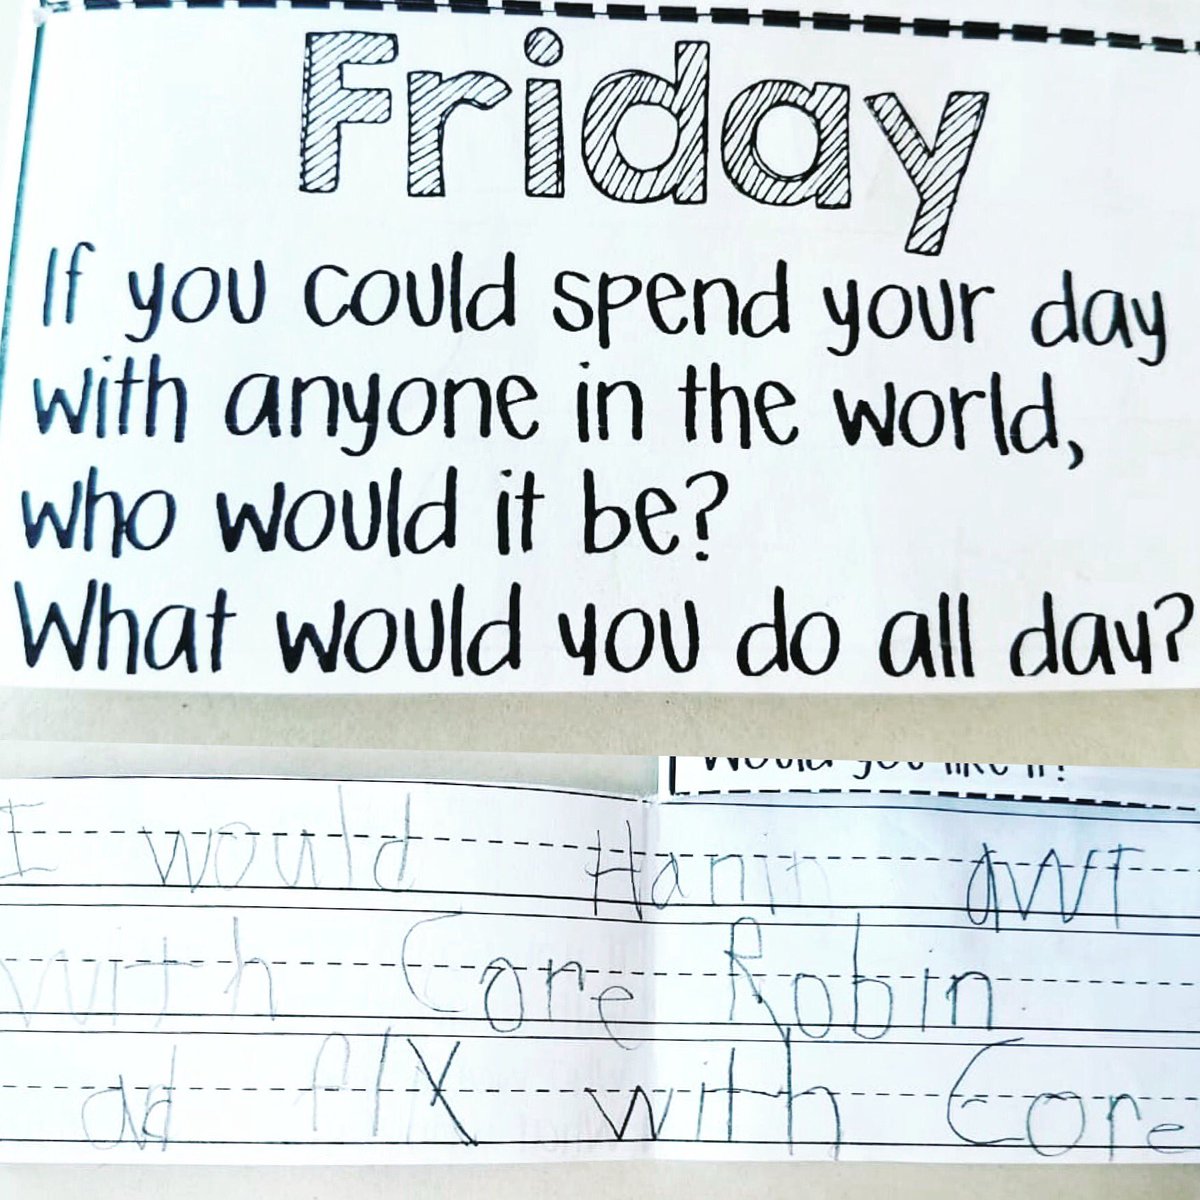 Friday
If you could spend your day
with anyone in the world,
who would it be?
What would you do all day?
Would you like it?
I would Hanin awt
with Core Robin
ad fix with Core